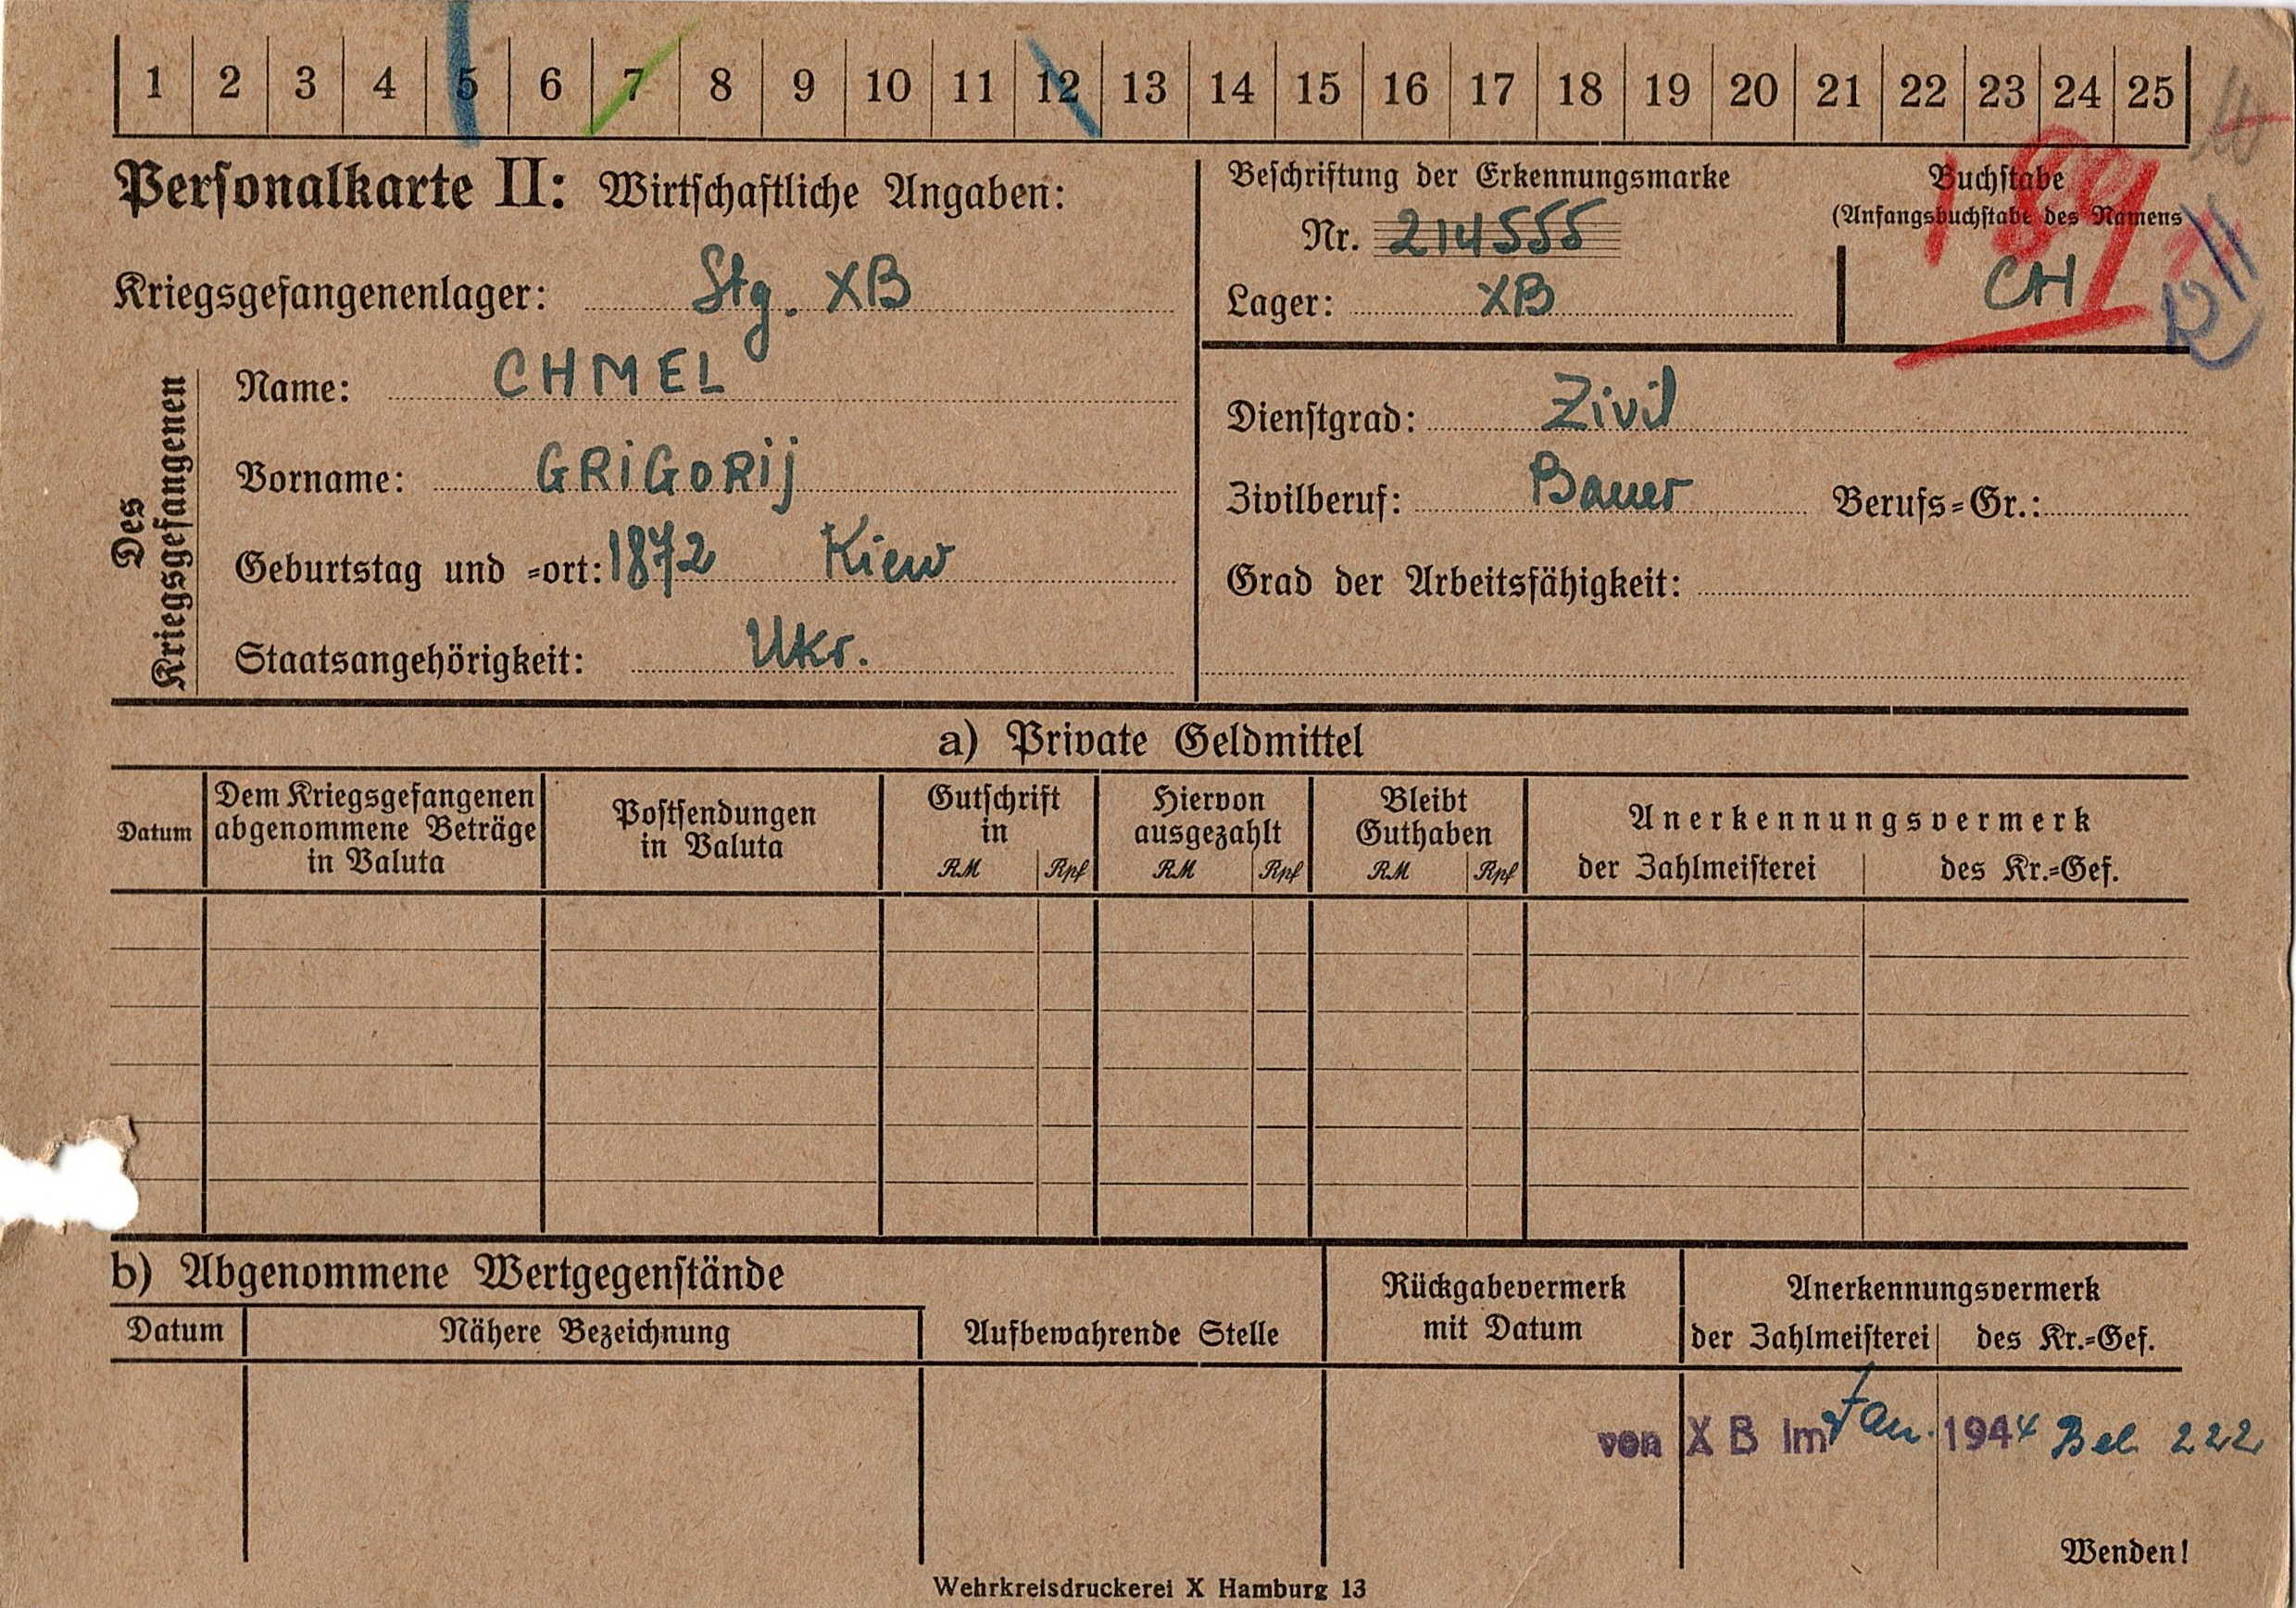 1 2 3 4 5 6 7 8 9 10 11 12 13 14 15 16 17 18 19 20 21 22 23 24 25
Personalkarte II: Wirtschaftliche Angaben:
Beschriftung der Erkennungsmarke
Nr. 214555
Lager: XB
Buchstabe
(Anfangsbuchstabe des Namens
CH
Kriegsgefangenenlager: Stg. XB
Des
Kriegsgefangenen
Name: CHMEL
Vorname: GRIGORIj
Geburtstag und =ort: 1872 Kiew
Staatsangehörigkeit: Ukr.
Dienstgrad: Zivil
Zivilberuf: Bauer Berufs=Gr.:
Grad der Arbeitsfähigkeit:
a) Private Geldmittel
Datum
Dem Kriegsgefangenen
abgenommene Beträge
in Valuta
Postsendungen
in Valuta
Gutschrift
in
RM Rpf
Hiervon
ausgezahlt
RM Rpf
Bleibt
Guthaben
RM Rpf
Anerkennungsvermerk
der Zahlmeisterei des Kr.=Gef.
b) Abgenommene Wertgegenstände
Datum Nähere Bezeichnung Aufbewahrende Stelle
Rückgabevermerk
mit Datum
Anerkennungsvermerk
der Zahlmeisterei des Kr.=Gef.
von X B im Jan. 1944 Bel. 222
Wenden!
Wehrkreisdruckerei X Hamburg 13